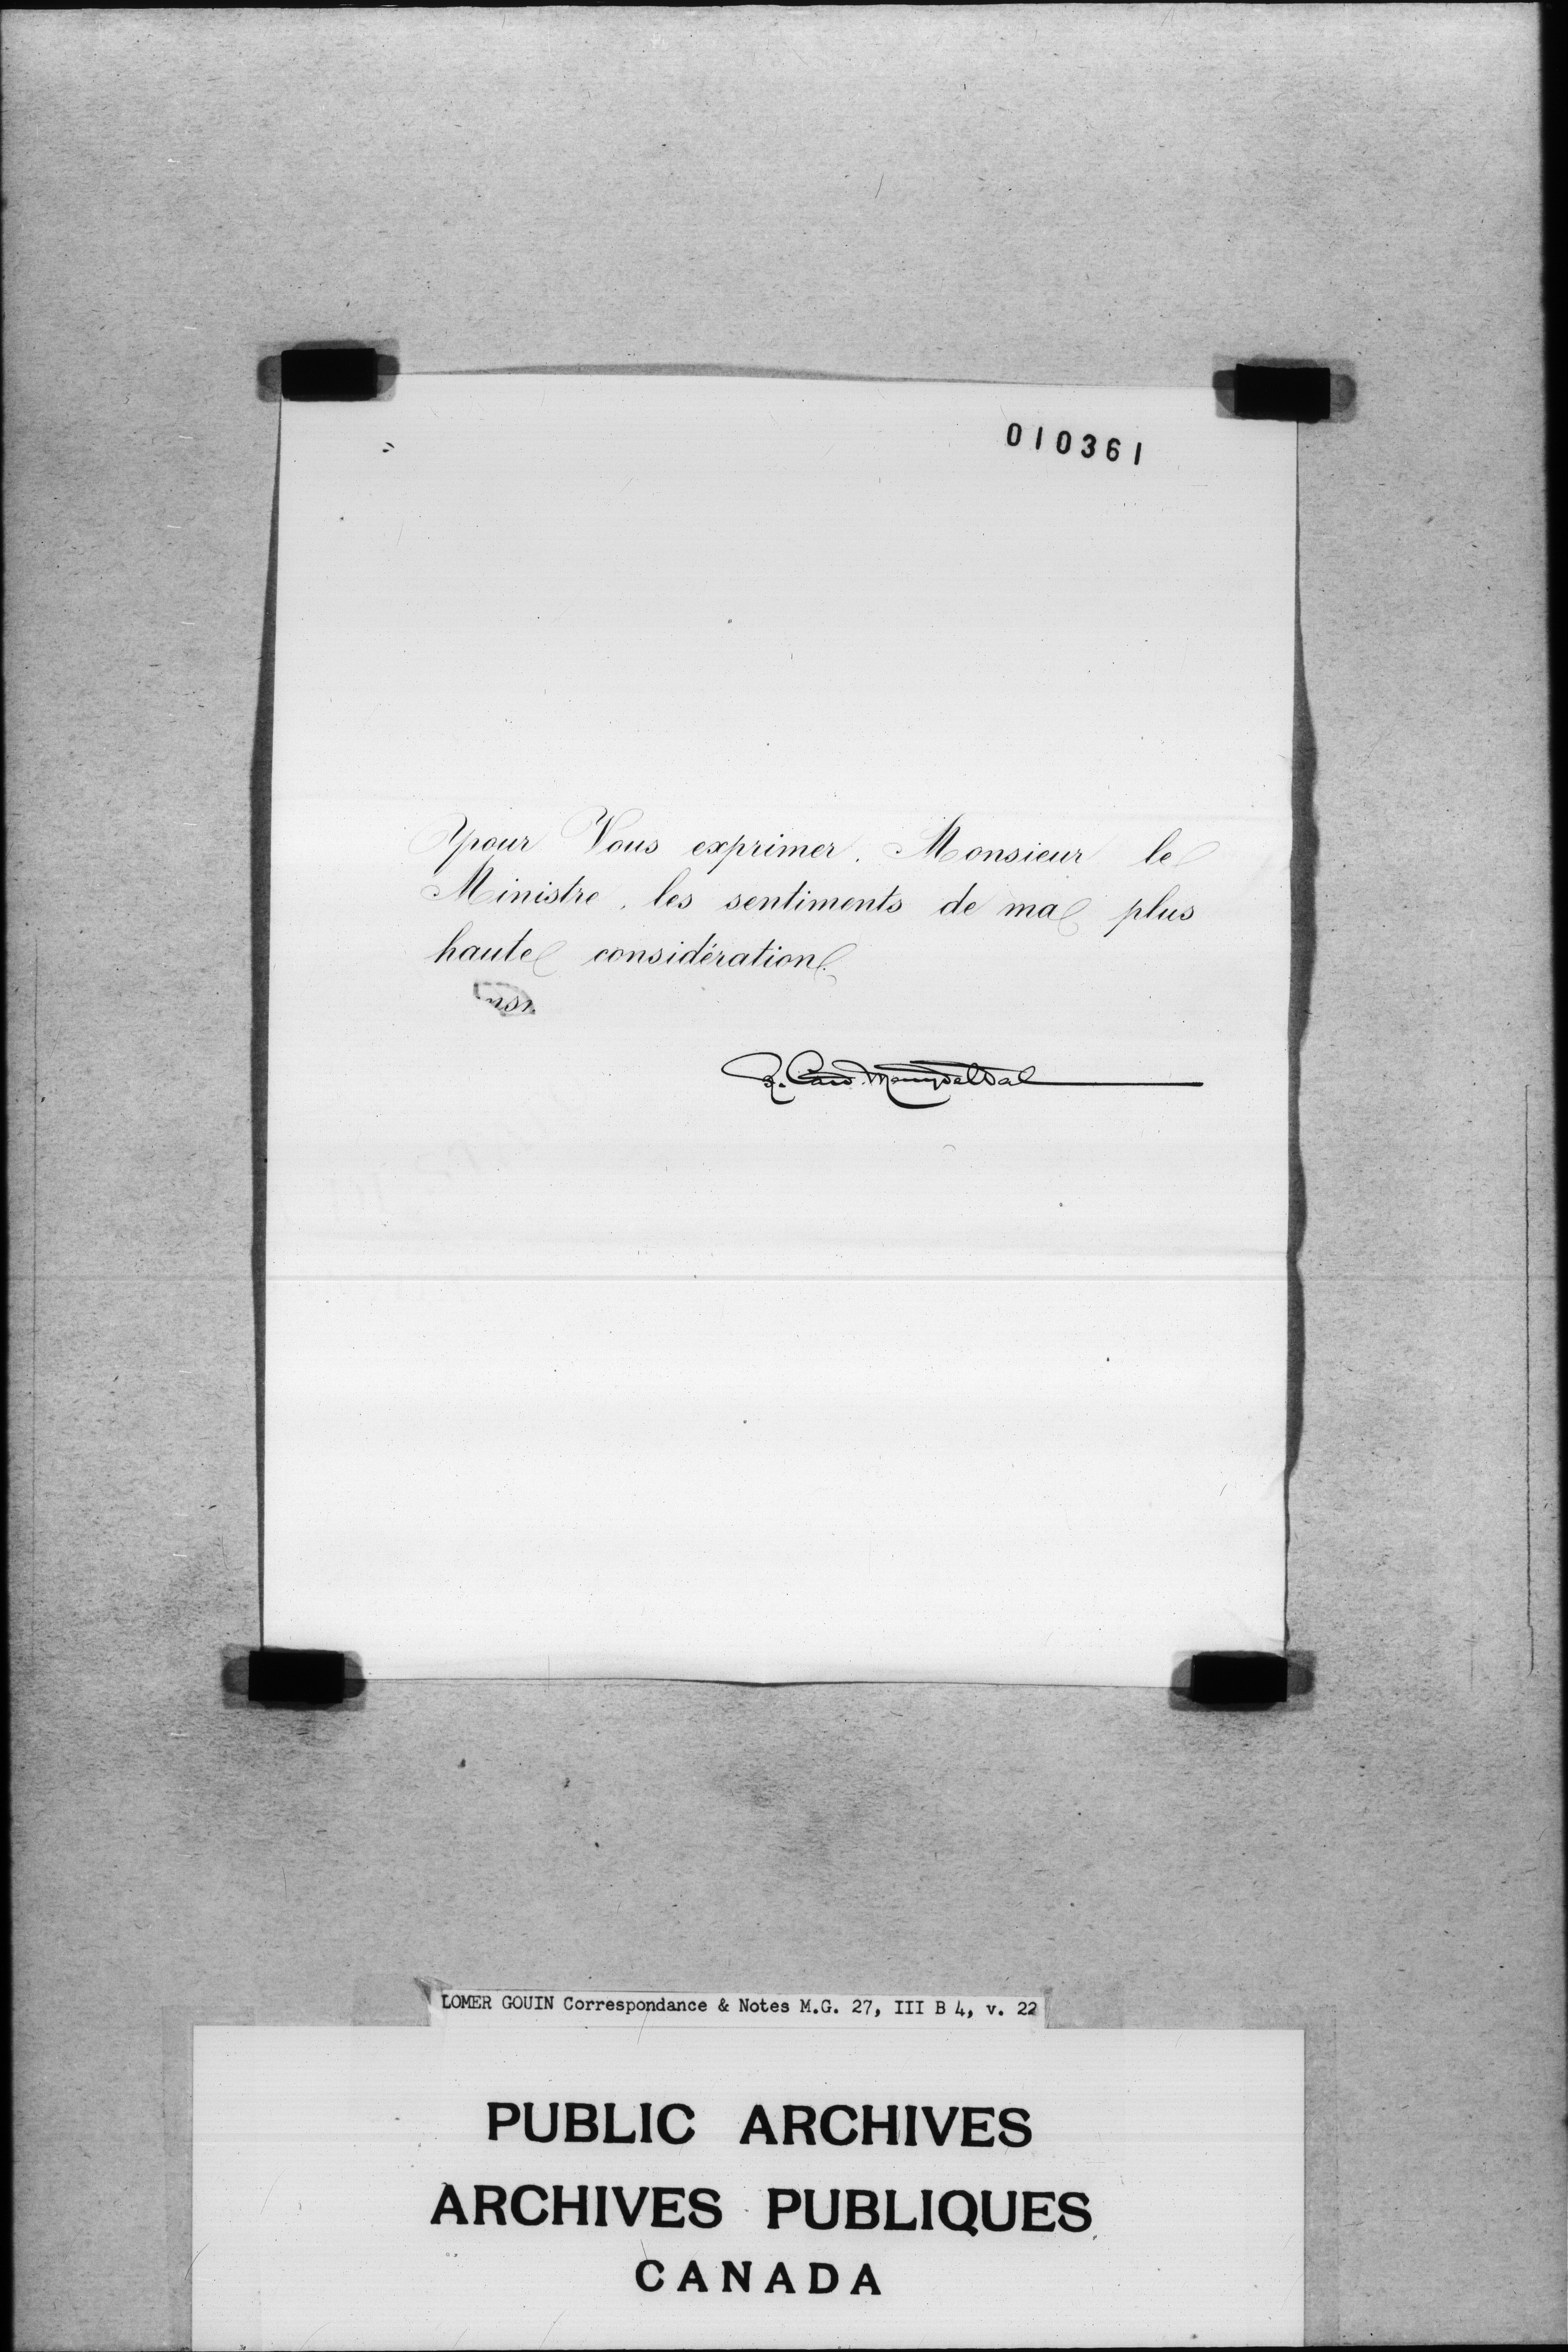 010361
pour Vous exprimer, Monsieur le
Ministre, les sentiments de ma plus
haute considération.
LOMER GOUIN Correspondance & Notes M.G. 27, III B 4, v. 22
PUBLIC ARCHIVES
ARCHIVES PUBLIQUES
CANADA